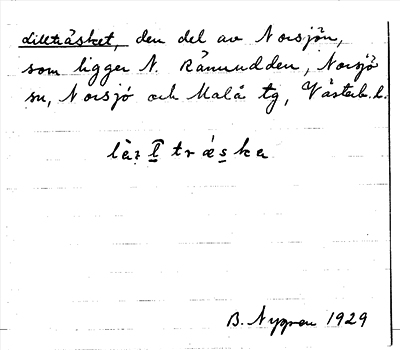 Lillträsket, den del av Norsjön,
som ligger N. Rännudden, Norsjö
sn, Norsjö och Malå tg, Västerb. l.
träska
B. Nygren 1929